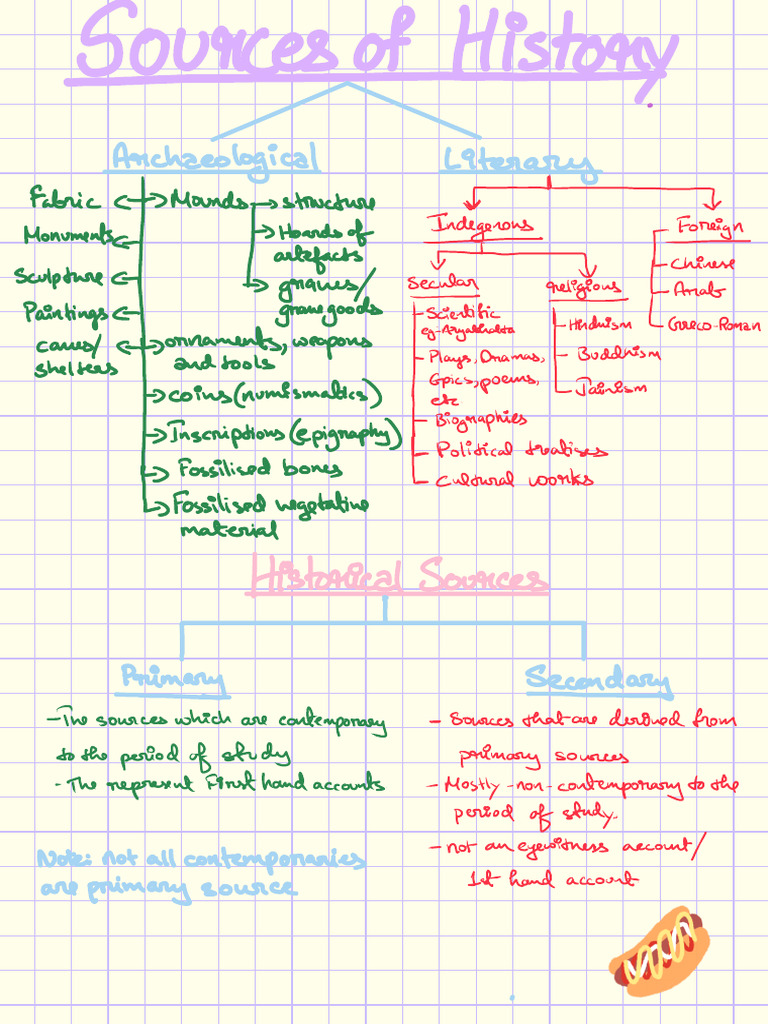 Sources of History
Archaeological
Fabric
Monuments
Sculpture
Paintings
caves/
shelters
Mounds
structure
Hoards of
artefacts
graves/
grave goods
ornaments, weapons
and tools
coins (numismatics)
Inscriptions (epigraphy)
Fossilised bones
Fossilised vegetative
material
Literary
Indegenous
secular
- Scientific
eg - Aryabhatta
- Plays, Dramas,
Epics, poems,
etc
- Biographies
- Political treatises
- Cultural works
religious
- Hinduism
- Buddhism
- Jainism
Foreign
- Chinese
- Arab
- Greco-Roman
Historical Sources
Primary
- The sources which are contemporary
to the period of study
- The represent First hand accounts
Note: not all contemporaries
are primary source
Secondary
- Sources that are derived from
primary sources
- Mostly non-contemporary to the
period of study.
- not an eyewitness account/
1st hand account